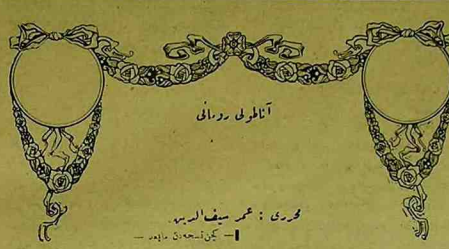 آناطولی رومانی
محرری : عمر سیف الدین
— کچن نسخه‌دن مابعد —